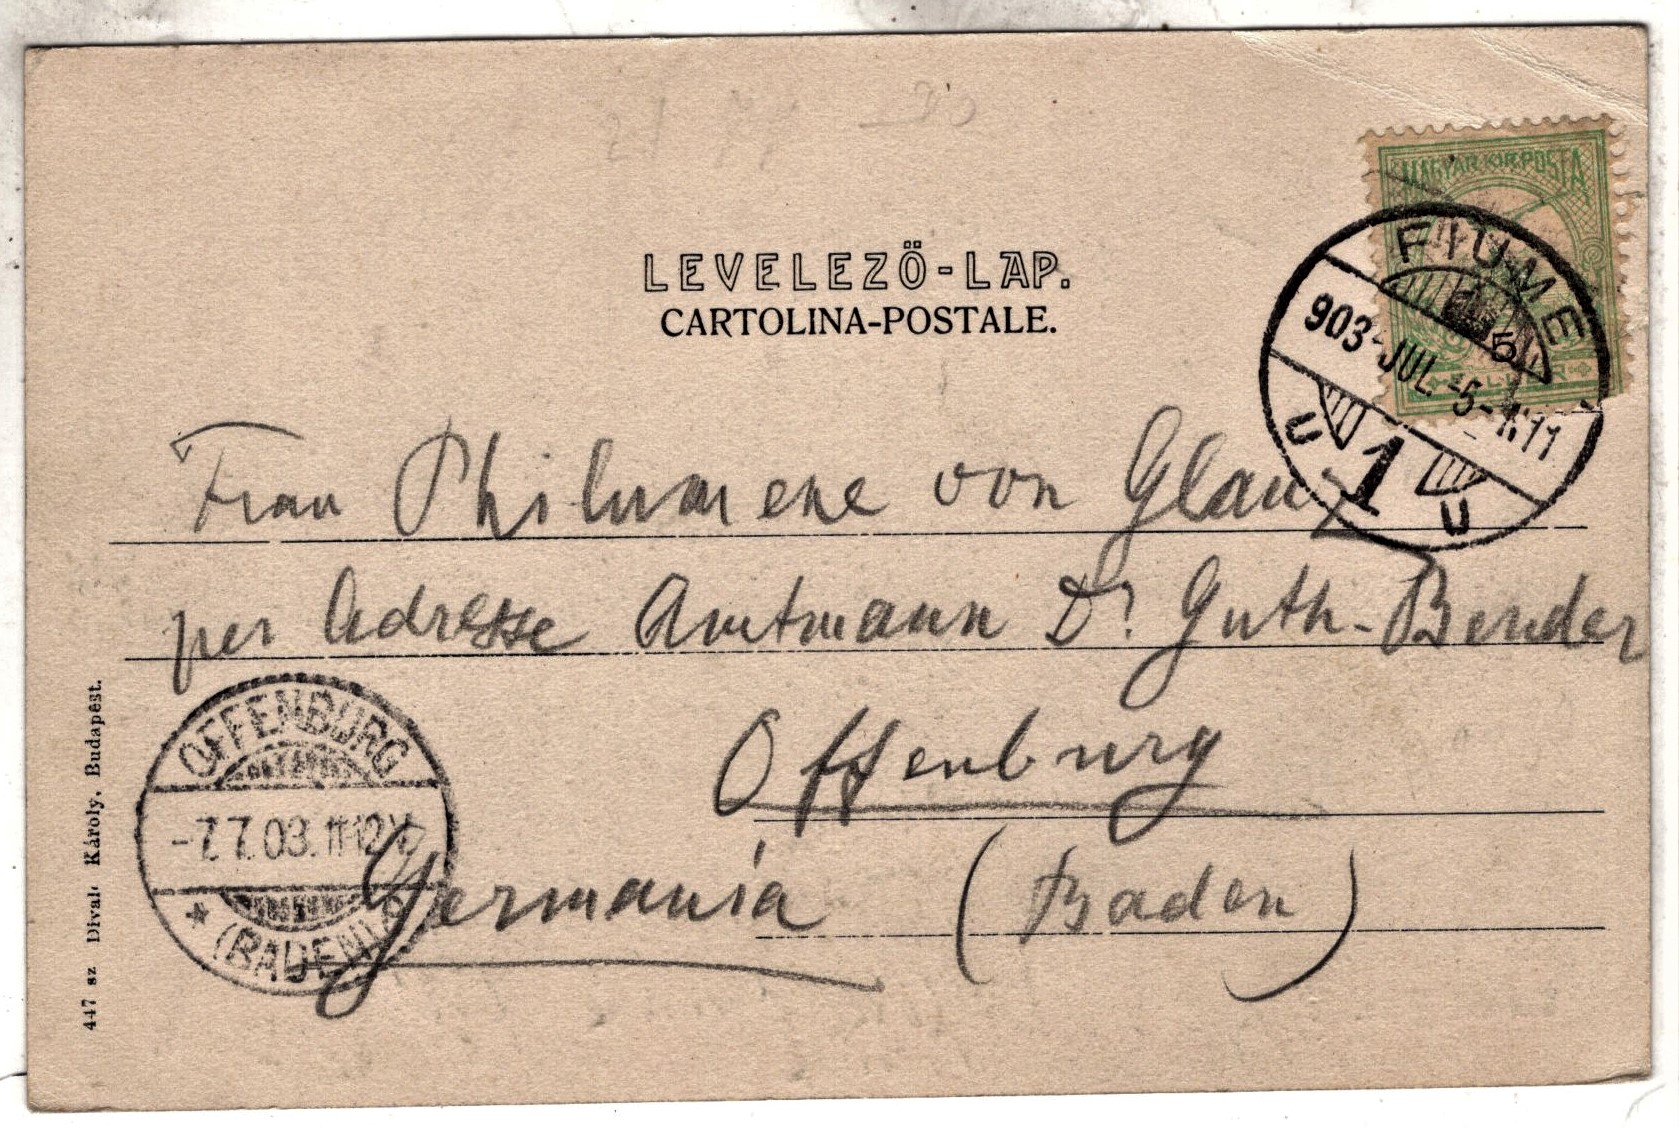 MAGYAR KIR. POSTA
5
FILLÉR
LEVELEZŐ-LAP.
CARTOLINA-POSTALE.
FIUME
903-JUL.-5-N11
U 1 U
Frau Philumene von Glanz
per Adresse Amtmann Dr. Guth-Bender
Offenburg
Germania (Baden)
OFFENBURG
-7.7.03.11-12V.
* (BADEN)
447 sz Divald Károly, Budapest.